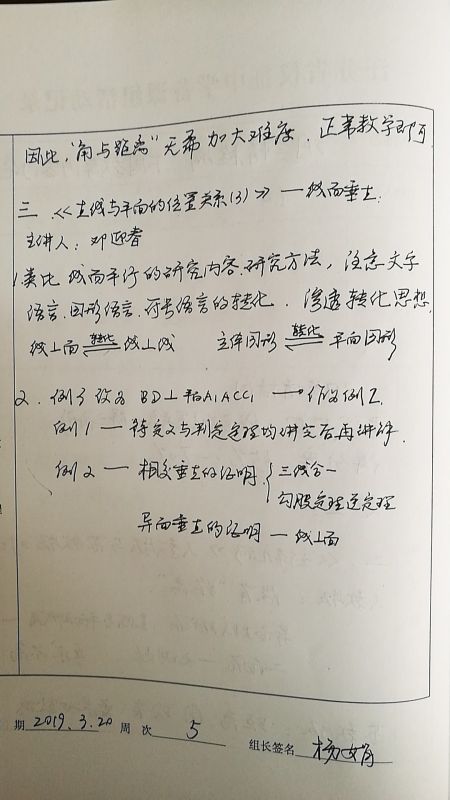 因此，“角与距离”无需加大难度，正常教学即可
三《直线与平面的位置关系(3)》—线面垂直.
主讲人：邓迎春
1 类比线面平行的研究内容、研究方法，注意文字
语言、图形语言、符号语言的转化．渗透转化思想.
线⊥面 转化 线⊥线 立体图形 转化 平面图形
2. 例3改为 BD⊥平面A1ACC1 → 作为例2.
例1 — 待定义与判定定理均讲完后再讲评.
例2 — 相交垂直的证明 { 三线合一
勾股定理逆定理
异面垂直的证明 — 线⊥面
期 2019.3.20 周次 5
组长签名 杨